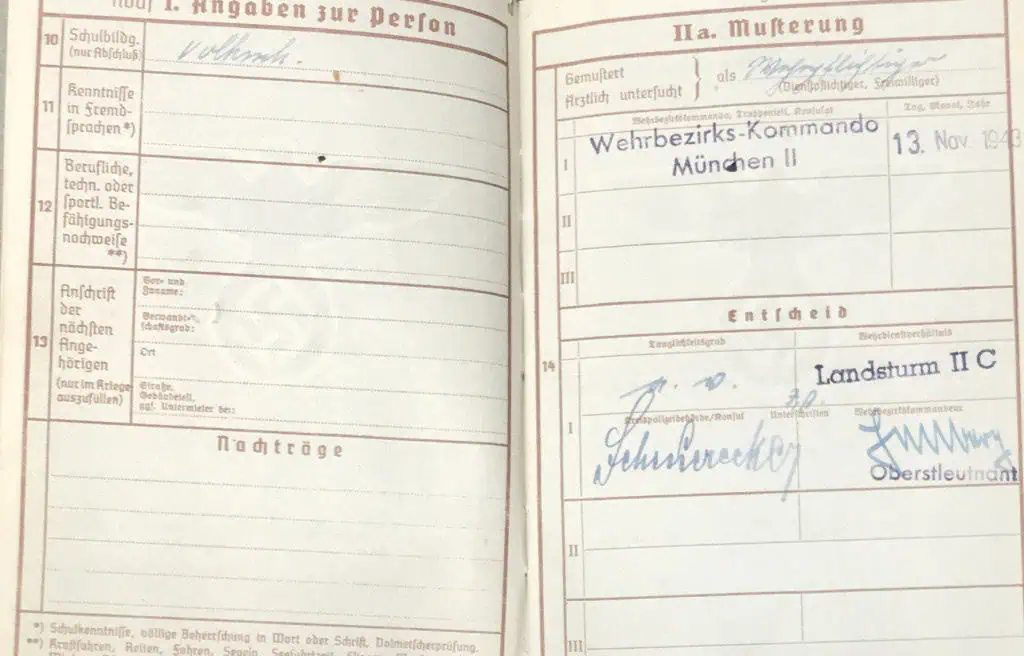 Noch I. Angaben zur Person
10
Schulbildg.
(nur Abschluß)
Volkssch.
11
Kenntnisse
in Fremd-
sprachen *)
12
Berufliche,
techn. oder
sportl. Be-
fähigungs-
nachweise
**)
13
Anschrift
der
nächsten
Ange-
hörigen
(nur im Kriege
auszufüllen)
Vor- und
Zuname:
Verwandt-
schaftsgrad:
Ort
Straße,
Gebäudeteil,
ggf. Untermieter bei:
Nachträge
*) Schulkenntnisse, völlige Beherrschung in Wort oder Schrift, Dolmetscherprüfung.
**) Kraftfahren, Reiten, Fahren, Segeln,
IIa. Musterung
Gemustert
Ärztlich untersucht
als Wehrpflichtiger
(Dienstpflichtiger, Freiwilliger)
Wehrbezirkskommando, Truppenteil, Konsulat
Tag, Monat, Jahr
I
Wehrbezirks-Kommando
München II
13. Nov. 1943
II
III
14
Entscheid
Tauglichkeitsgrad
Wehrdienstverhältnis
Landsturm II C
I
Kreispolizeibehörde/Konsul
Unterschriften
Wehrbezirkskommandeur
Oberstleutnant
II
III